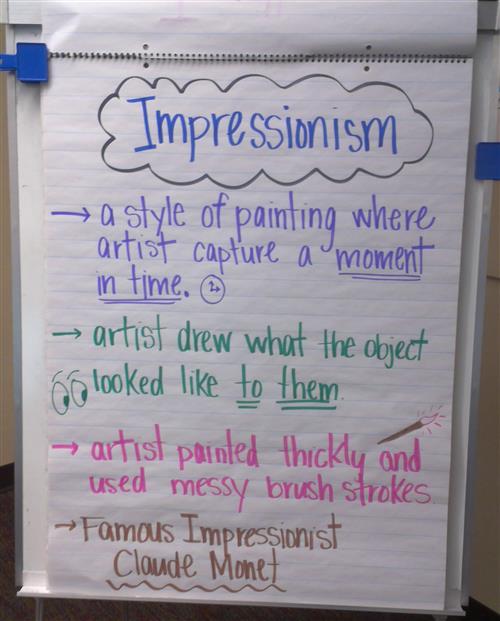 Impressionism
→ a style of painting where
artist capture a moment
in time.
→ artist drew what the object
looked like to them.
→ artist painted thickly and
used messy brush strokes.
→ Famous Impressionist
Claude Monet